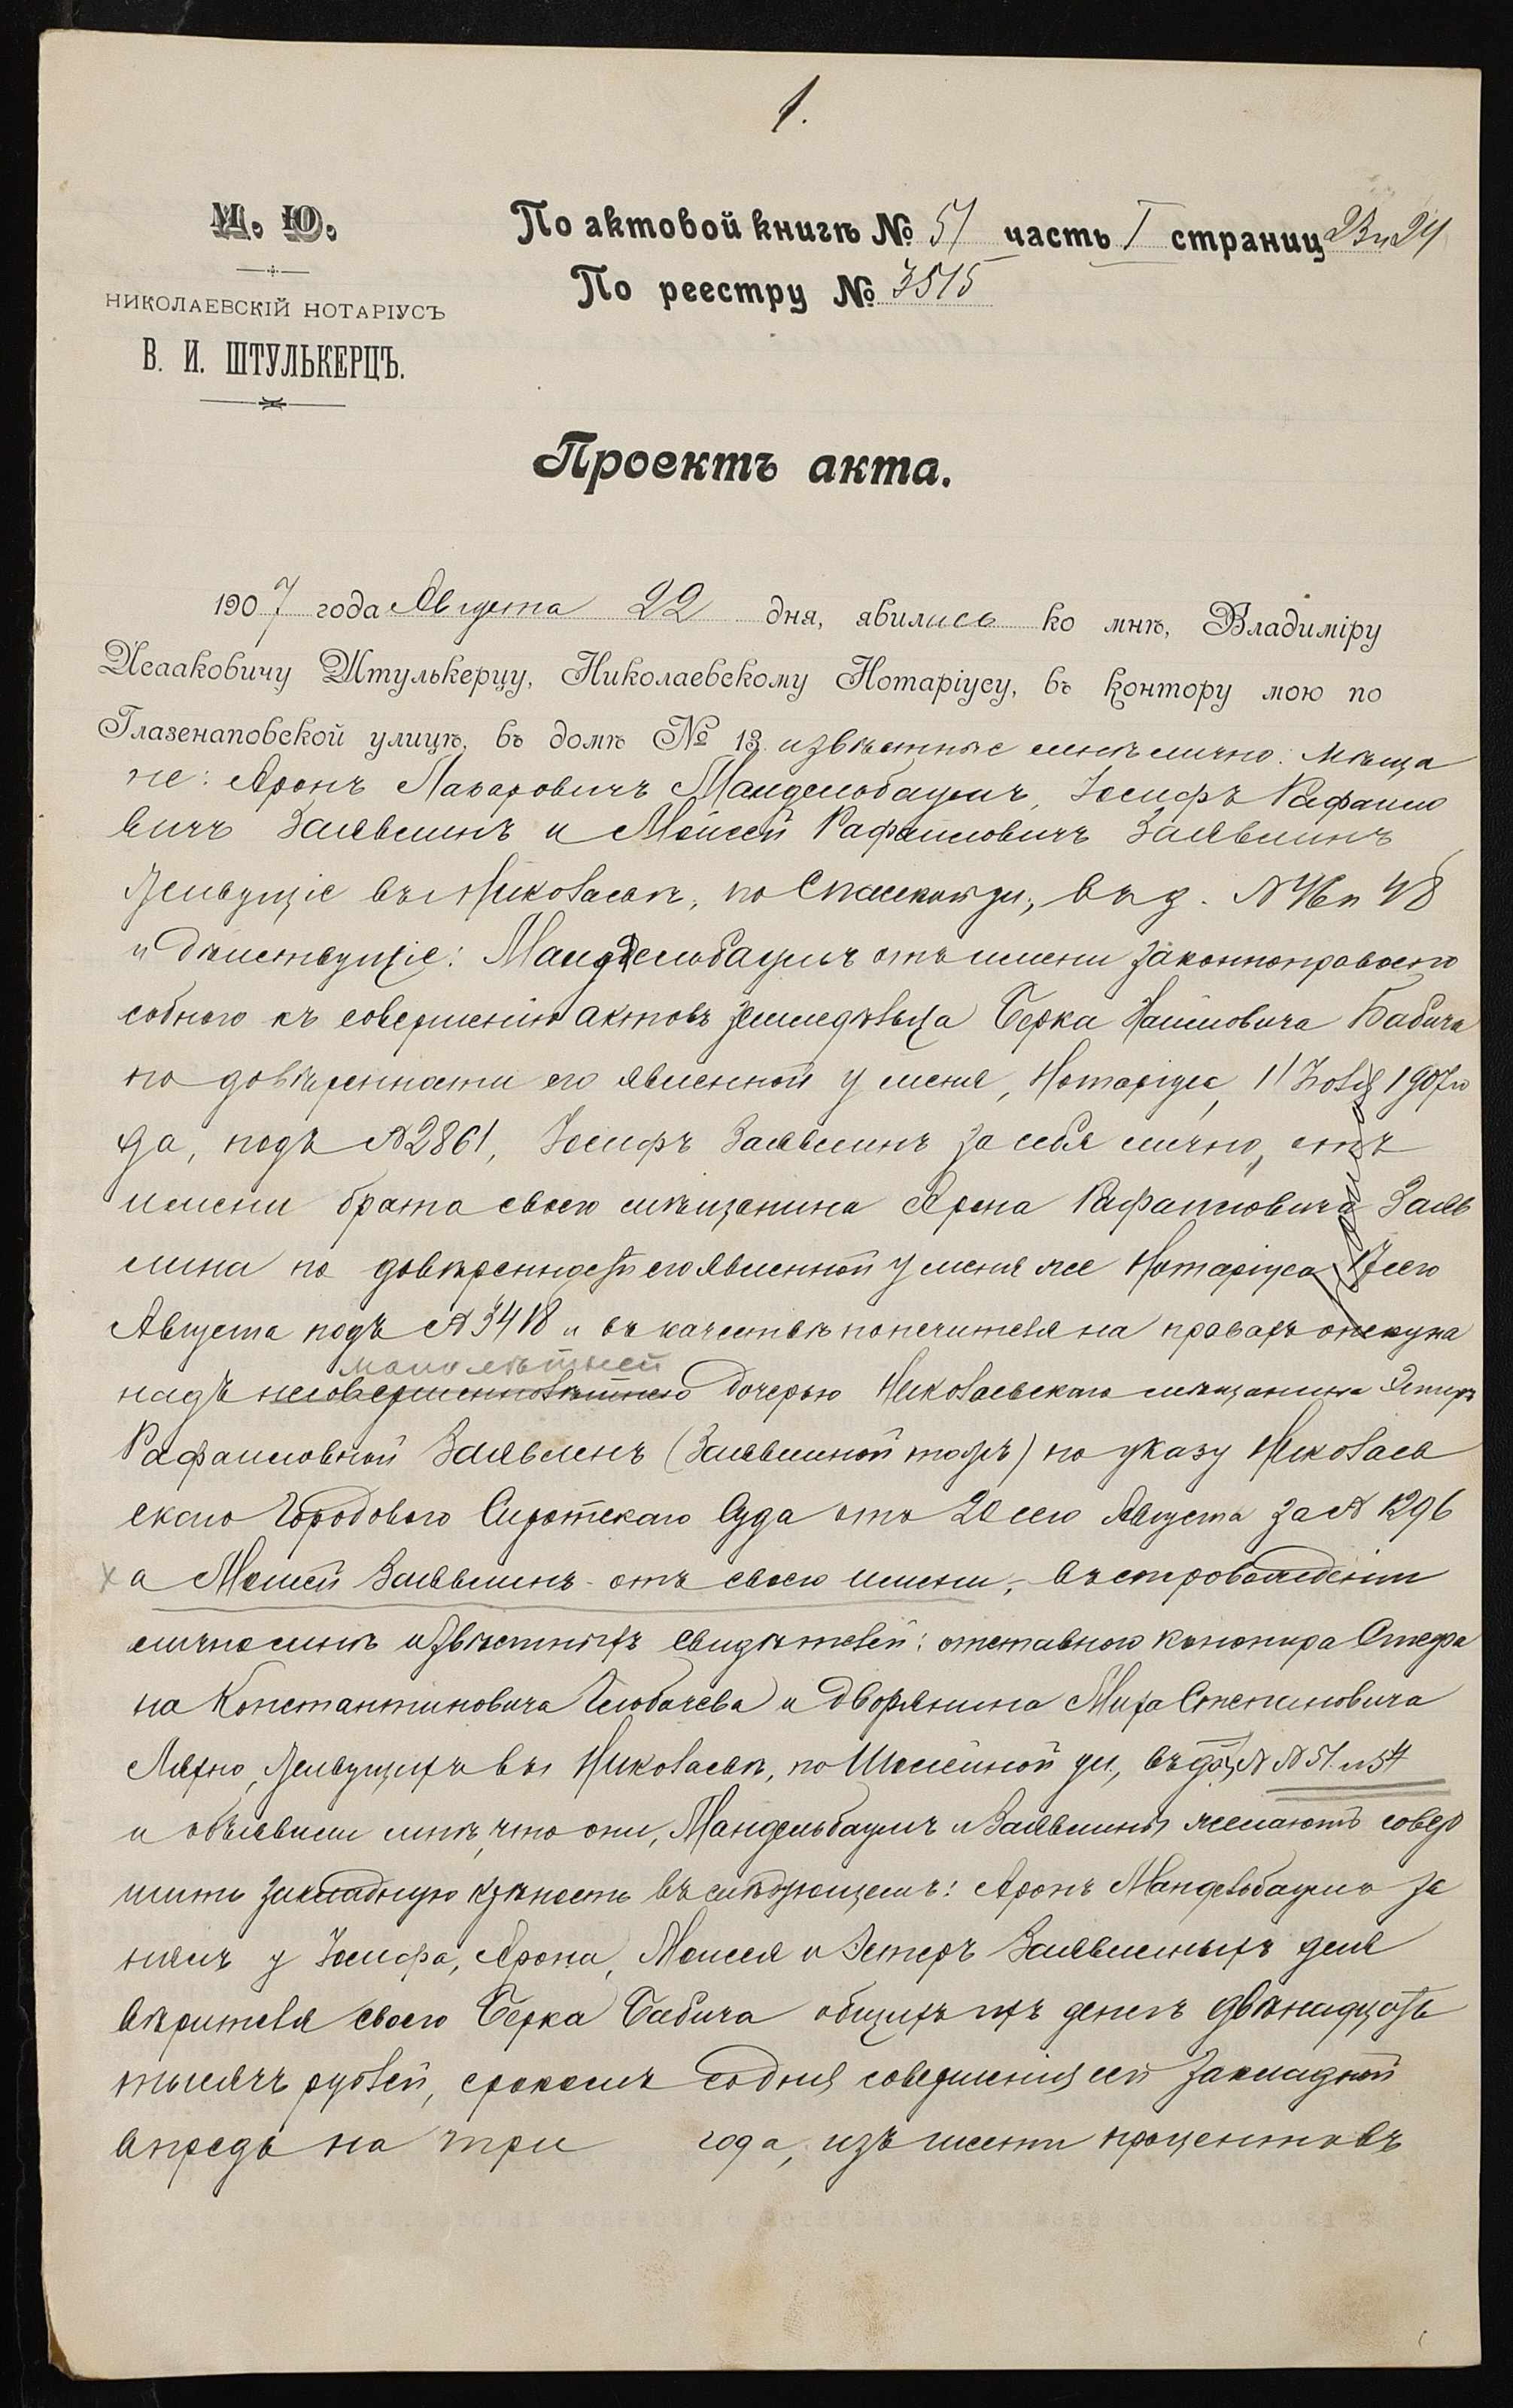 1.
М. Ю.
НИКОЛАЕВСКІЙ НОТАРІУСЪ
В. И. ШТУЛЬКЕРЦЪ.
По актовой книгѣ № 51 часть I страниц 23 и 24
По реестру № 3515
Проектъ акта.
1907 года Августа 22 дня, явились ко мнѣ, Владиміру
Исааковичу Штулькерцу, Николаевскому Нотаріусу, въ контору мою по
Глазенаповской улицѣ, въ домѣ № 13 извѣстные мнѣ лично: мѣща
не: Аронъ Лазаровичъ Мандельбаумъ, Іосифъ Рафаило
вичъ Залевскинъ и Моисей Рафаиловичъ
живущіе въ г. Николаевѣ, по Спасской ул., въ д. № 46 и 48
и дѣйствующіе: Мандельбаумъ отъ имени законноправоспо
собного къ совершенію актовъ земледѣльца Берка Хаимовича Бабича
по довѣренности его явленной у меня, Нотаріуса, 11 Іюля 1907 го
да, подъ № 2861, Іосифъ за себя лично, отъ
имени брата своего мѣщанина Арона Рафаиловича
по довѣренности его явленной у меня же Нотаріуса 17 сего
Августа подъ № 3418 и въ качествѣ попечителя на правахъ опекуна
малолѣтней
надъ несовершеннолѣтнею дочерью Николаевскаго мѣщанина Эстеръ
Рафаиловной по указу Николаев
скаго Городового Сиротскаго Суда отъ 20 сего Августа за № 1296
х а Моисей отъ своего имени, въ сопровожденіи
лично мнѣ извѣстныхъ свидѣтелей: отставного канонира Стефа
на Константиновича и дворянина Степановича
живущихъ въ г. Николаевѣ, по ул., въ д. № № 51 и 54
и объявили мнѣ, что они, Мандельбаумъ и желаютъ совер
шить закладную крѣпость въ слѣдующемъ: Аронъ Мандельбаумъ за
нялъ у Іосифа, Арона, Моисея и Эстеръ для
вѣрителя своего Берка Бабича общихъ ихъ денегъ двѣнадцать
тысячъ рублей, срокомъ со дня совершенія сей закладной
впредь на три года, изъ шести процентовъ